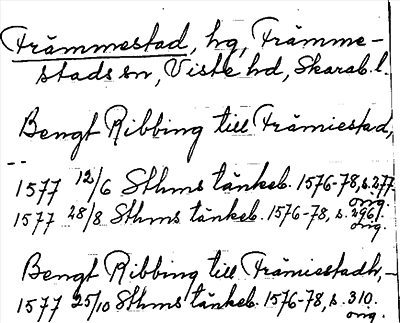 Främmestad, hg, Främme-
stads sn, Viste hd, Skarab. l.
Bengt Ribbing till Främiestad,
--
1577 12/6 Sthms tänkeb. 1576-78, s. 277.
orig.
1577 28/8 Sthms tänkeb. 1576-78, s. 296/.
orig.
Bengt Ribbing till Främiestadh, -
1577 25/10 Sthms tänkeb. 1576-78, s. 310.
orig.